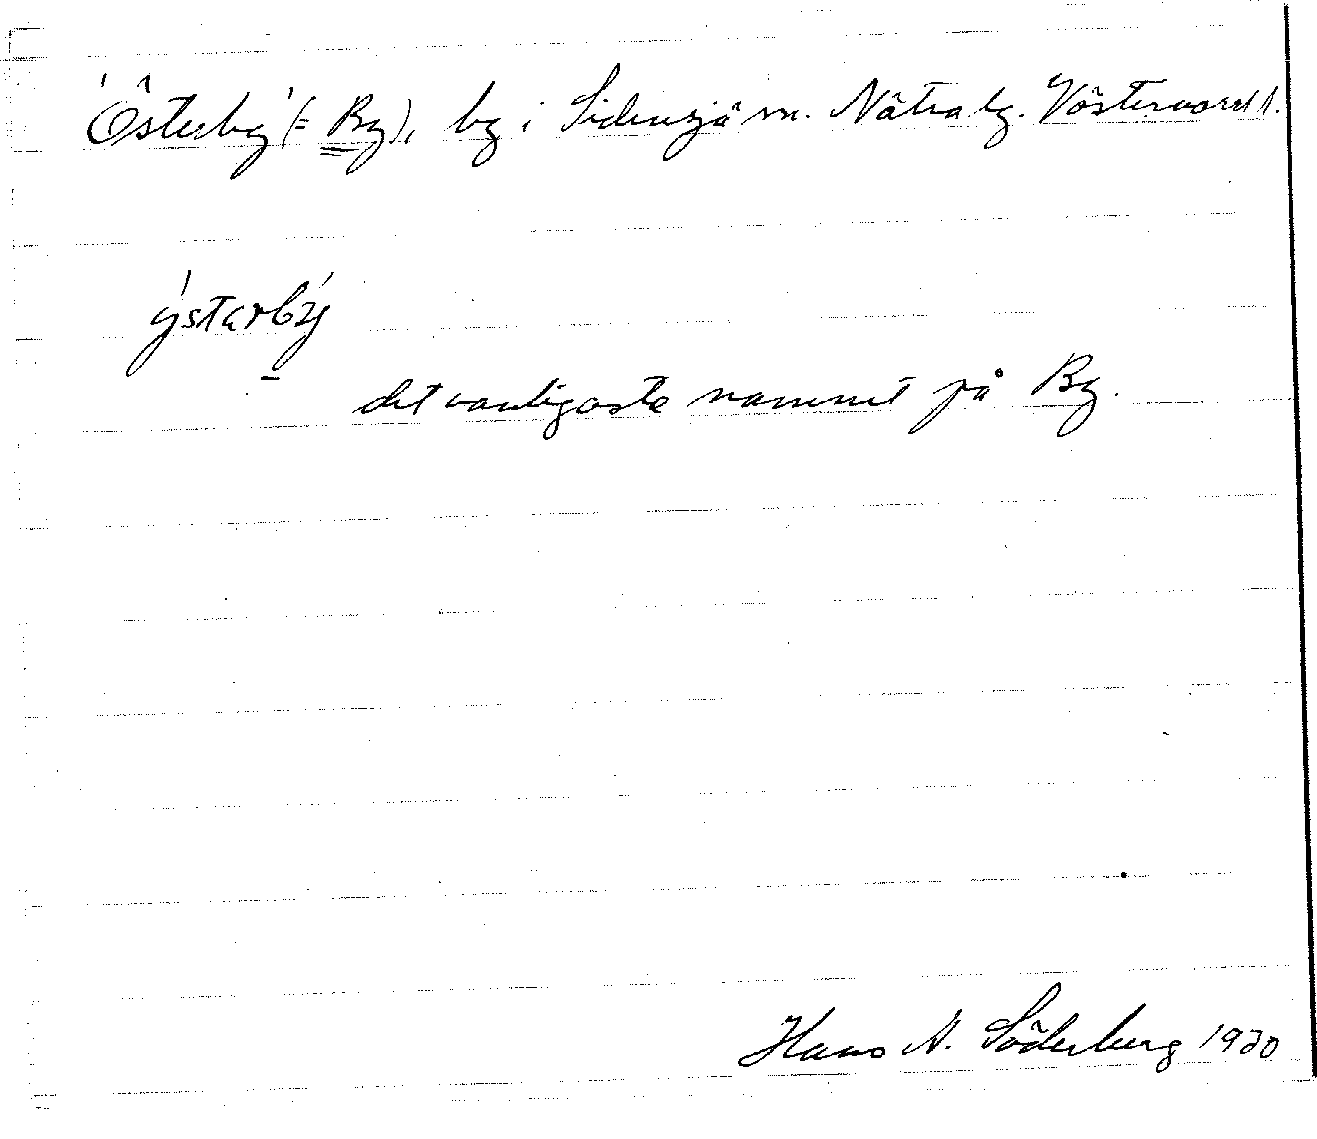 'Österby' (= By), by i Sidensjö sn. Nätra tg. Västernorrl l.
ýstarbý
det vanligaste namnet på By.
Hans N. Söderberg 1930